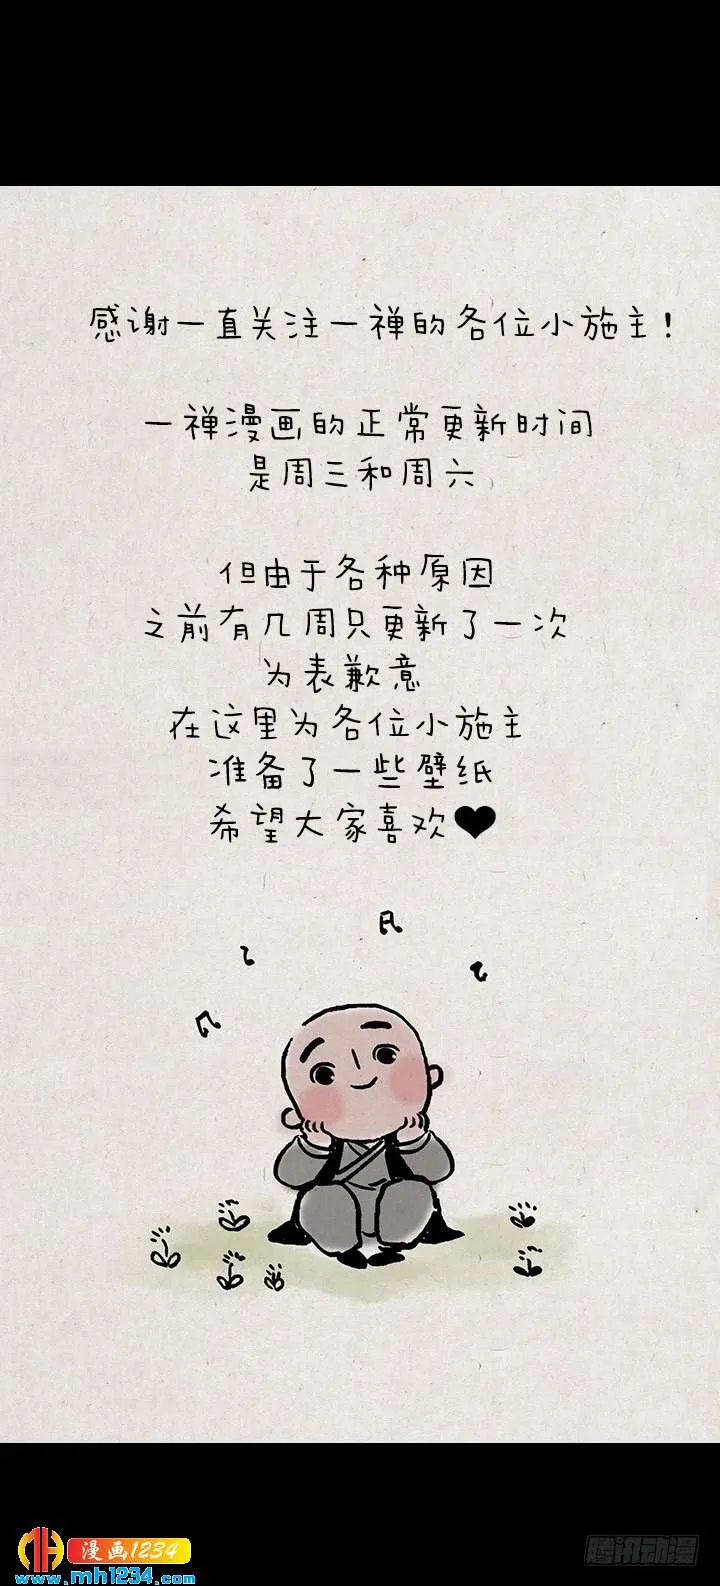 感谢一直关注一禅的各位小施主!
一禅漫画的正常更新时间
是周三和周六
但由于各种原因
之前有几周只更新了一次
为表歉意
在这里为各位小施主
准备了一些壁纸
希望大家喜欢❤
漫画1234
www.mh1234.com
腾讯动漫